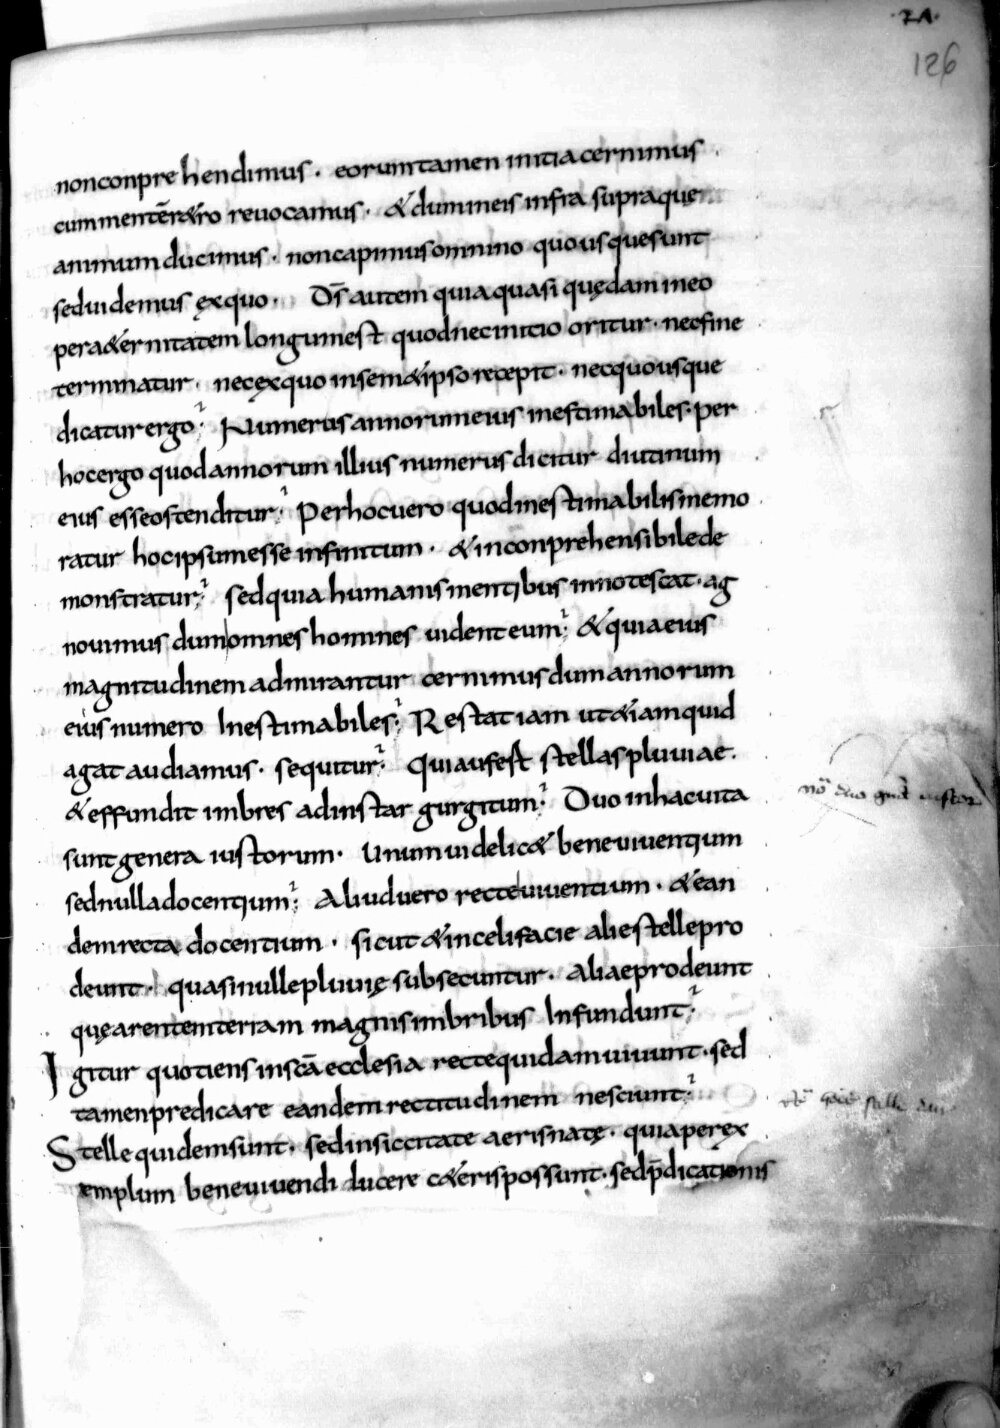 126
nonconprehendimus · eorumtamen initiacernimus
cummentēr&ro reuocamus · &dummeis infra supraque
animum ducimus · noncapimusomnino quousquesunt
seduidemus ęxquo · D̅s̅ autem quiaquasi quędam ineo
pera&ernitatem longumest quodnecinitio oritur · necfine
terminatur · necęxquo insem&ipso recepit · necquousque
dicaturergo · Numerus annorumeius inestimabiles · per
hocergo quodannorum illius numerus dicitur diutinum
eius esseostenditur · Perhocuero quodinestimabilismemo
ratur hocipsumesse infinitum · &inconprehensibilede
monstratur · sedquia humanis mentibus innotescat · ag
nouimus dumomnes homines uidenteum · &quiaeius
magnitudinem admirantur cernimusdumannorum
eius numero Inestimabiles · Restat iam ut&iamquid
agat audiamus · sequitur · Quiaufest stellaspluuiae ·
&effundit imbres adinstar gurgitum · Duo inhacuita
suntgenera iustorum · Unumuidelic& beneuiuentium
sednulladocentium · Aliuduero recteuiuentium · &ean
demrecta docentium · sicut &incelifacie aliestellepro
deunt · quasinullepluuię subsecuntur · Aliaeprodeunt
quęarentemterram magnisimbribus Infundunt ·
Igitur quotiens insc̅a ecclesia rectequidamuiuunt · sed
tamenpredicare eandemrectitudinem nesciunt ·
Stellequidemsunt · sedinsiccitate aerisnatę · quiaperex
emplum beneuiuendi lucere c&erispossunt · sedp̅dicationis